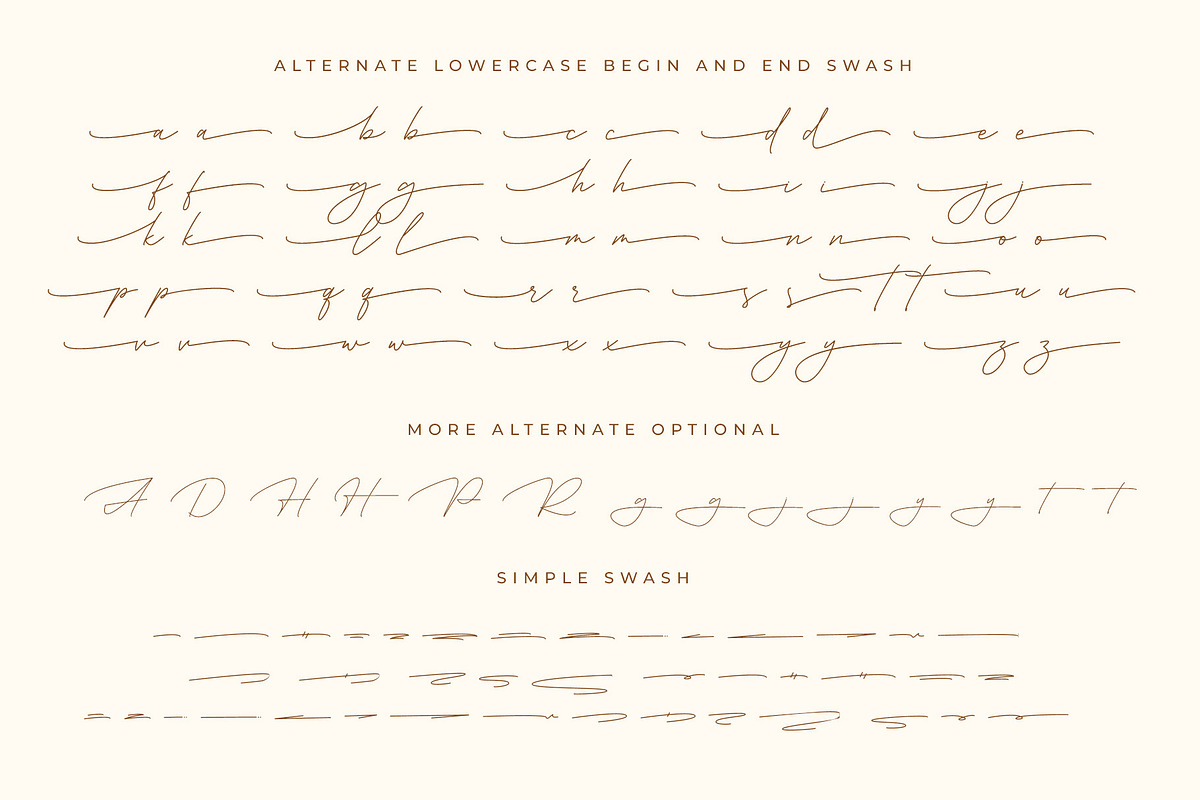 ALTERNATE LOWERCASE BEGIN AND END SWASH
a a b b c c d d e e
f f g g h h i i j j
k k l l m m n n o o
p p q q r r s s t t u u
v v w w x x y y z z
MORE ALTERNATE OPTIONAL
A D H H P R g g j j y y t t
SIMPLE SWASH